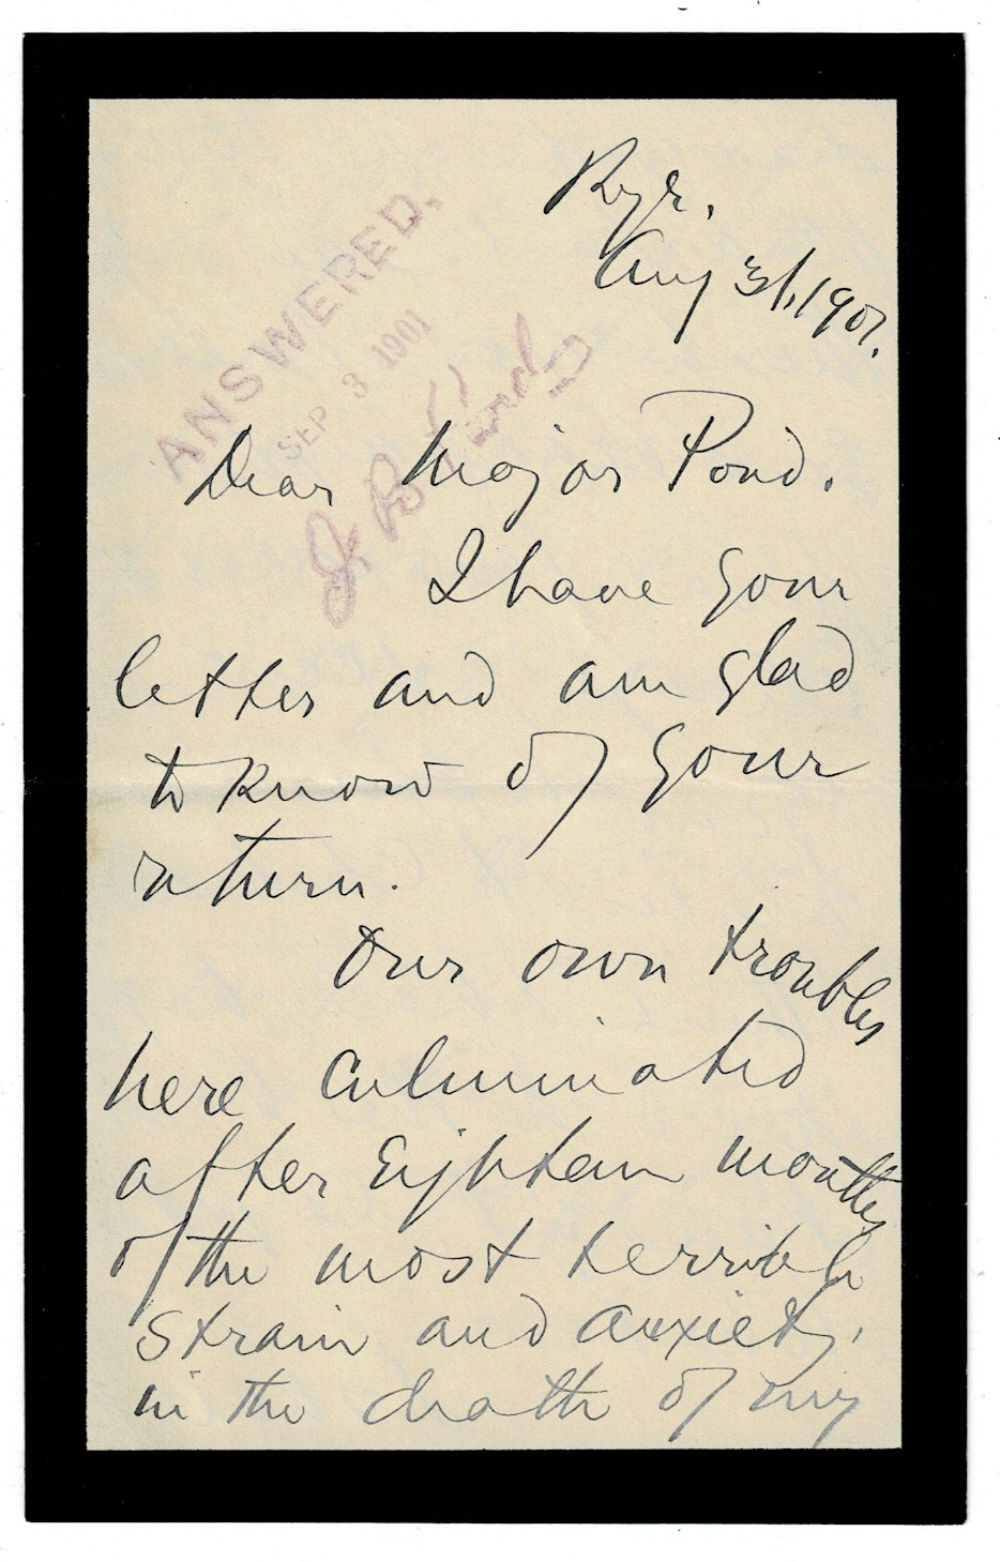 Rye.
Aug 31, 1901.
ANSWERED,
SEP 3 1901
J. B. Pond
Dear Major Pond.
I have your
letter and am glad
to know of your
return.
Our own troubles
here culminated
after Eighteen months
of the most terrible
strain and anxiety,
in the death of my